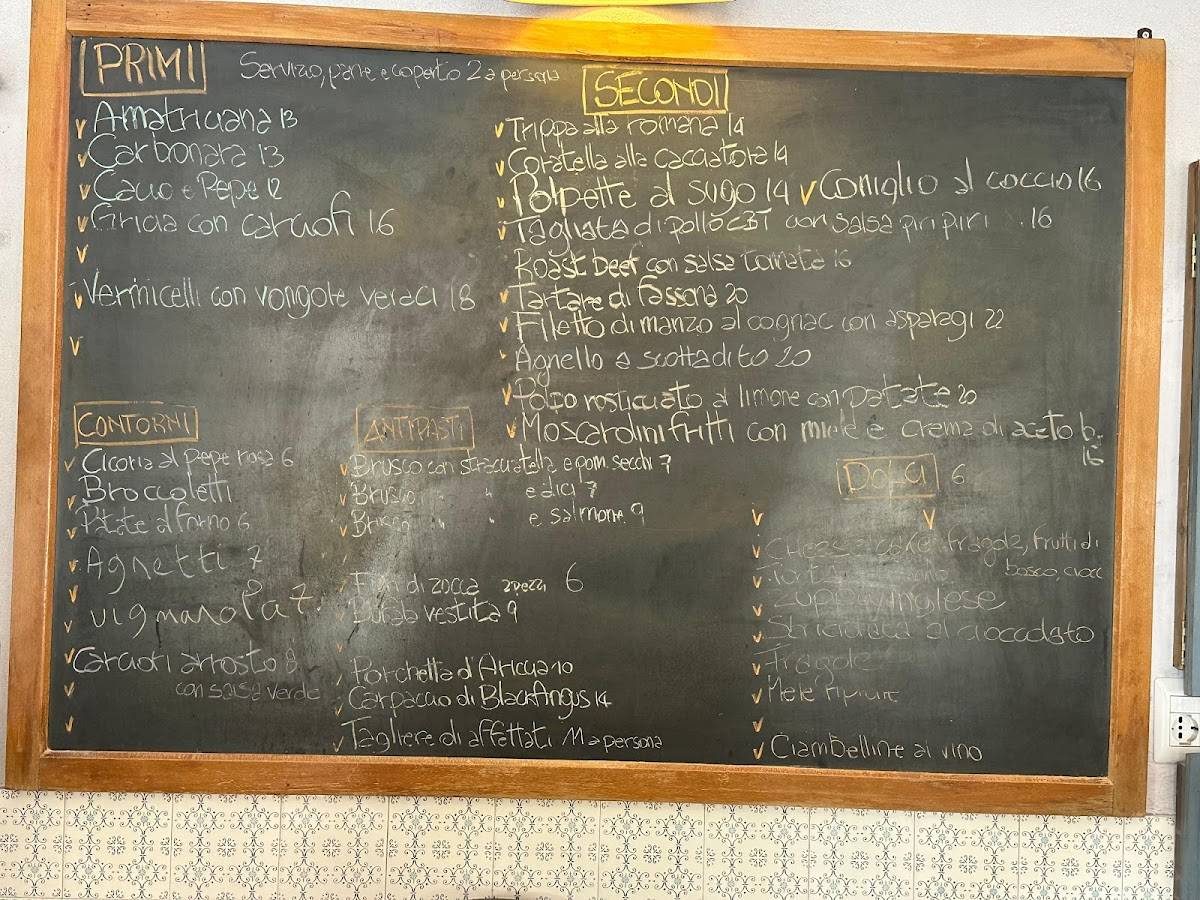 PRIMI
Servizio, pane e coperto 2 a persona
Amatriciana 13
Carbonara 13
Cacio e Pepe 12
Gricia con carciofi 16
Vermicelli con vongole veraci 18
SECONDI
Trippa alla romana 14
Coratella alla cacciatora 14
Polpette al sugo 14
Coniglio al coccio 16
Tagliata di pollo CBT con salsa piri piri 16
Roast beef con salsa tonnata 16
Tartare di fassona 20
Filetto di manzo al cognac con asparagi 22
Agnello a scottadito 20
Polpo rosticciato al limone con patate 20
Moscardini fritti con miele e crema di aceto b.
16
CONTORNI
Cicoria al pepe rosa 6
Broccoletti
Patate al forno 6
Agretti 7
Vignarola 7
Carciofi arrosto 8
con salsa verde
ANTIPASTI
Brusco con stracciatella e pom. secchi 7
Brusco " " e alici 7
Brusco " " e salmone 9
Fiori di zucca 2 pezzi 6
vestita 9
Porchetta d'Ariccia 10
Carpaccio di Black Angus 14
Tagliere di affettati 11 a persona
DOLCI 6
Cheese cake fragole, frutti di
bosco, ciocc
Torta
Zuppa inglese
al cioccolato
Fragole
Mele
Ciambelline al vino